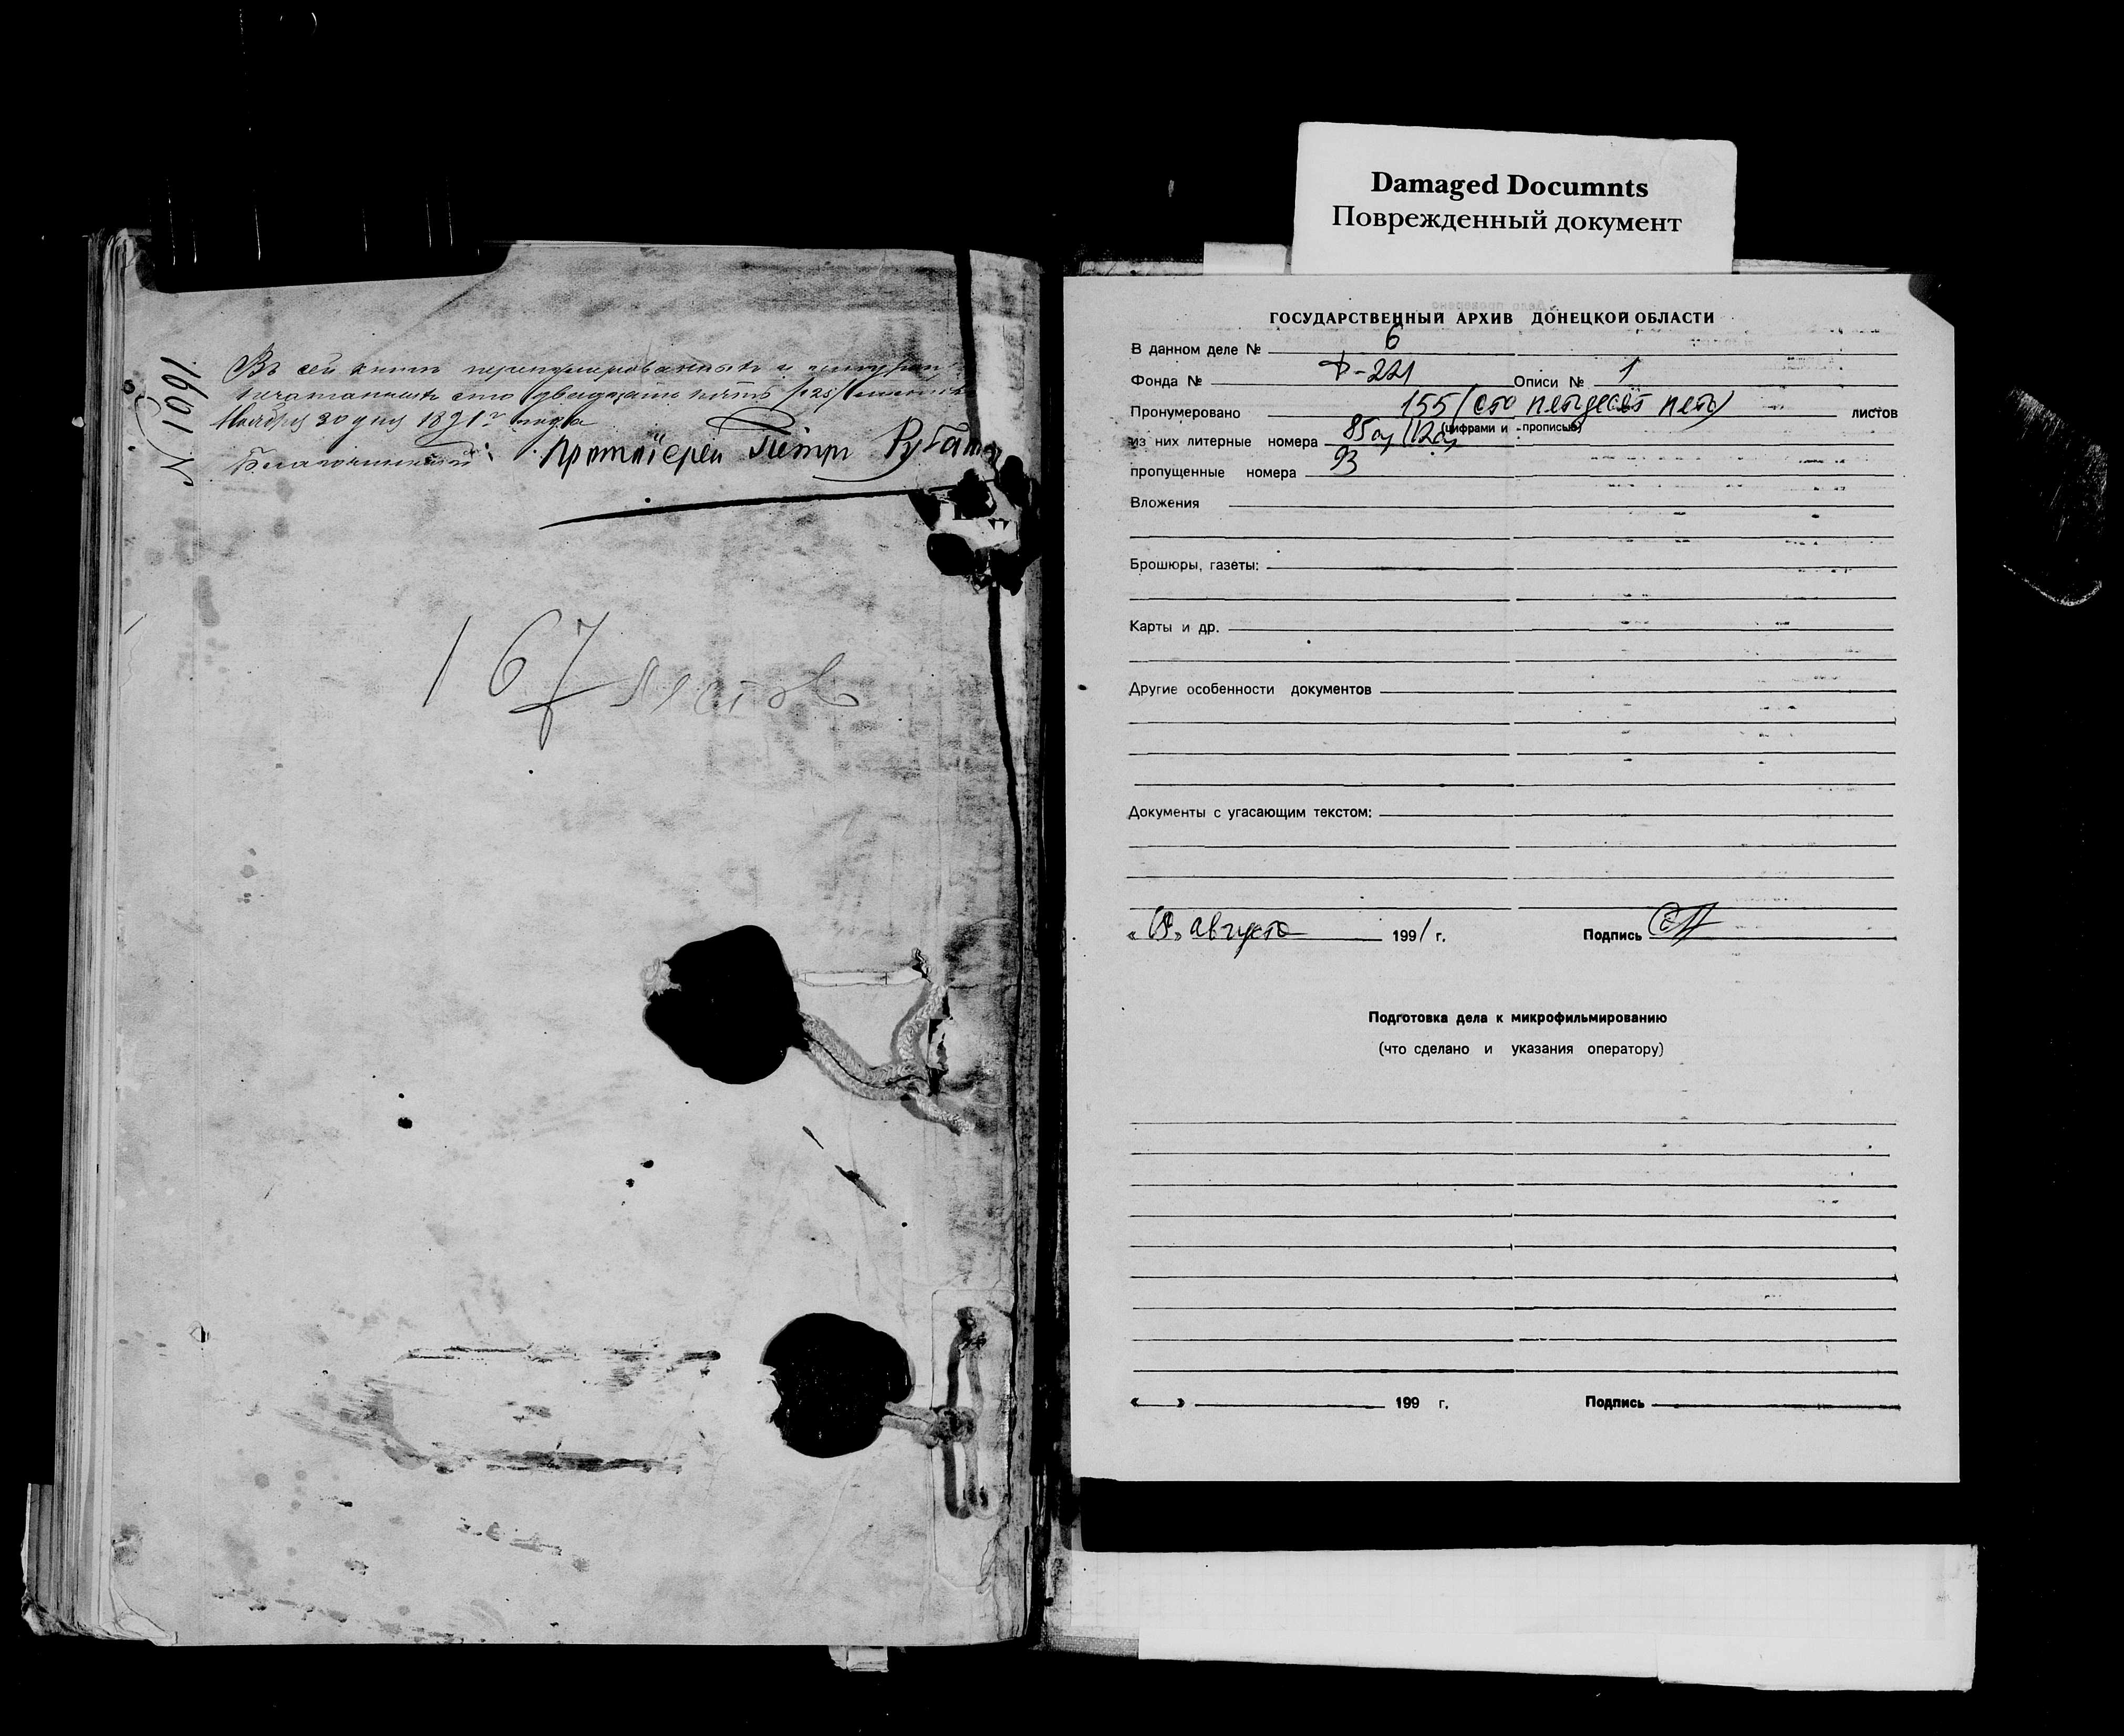 N 1091
Въ сей книгѣ перенумерованныхъ и шнуромъ
печатанныхъ сто двадцать пять /125/ листовъ
Ноября 30 дня 1891 года
Благочинный: Протоіерей Петръ
167 листов
Damaged Documnts
Поврежденный документ
ГОСУДАРСТВЕННЫЙ АРХИВ ДОНЕЦКОЙ ОБЛАСТИ
В данном деле № 6
Фонда № Ф-221 Описи № 1
Пронумеровано 155 (сто петдесят петь) листов
(цифрами и прописью)
из них литерные номера 85а, 12а,
пропущенные номера 93
Вложения
Брошюры, газеты:
Карты и др.
Другие особенности документов
Документы с угасающим текстом:
« » августа 1991 г. Подпись
Подготовка дела к микрофильмированию
(что сделано и указания оператору)
« » 199 г. Подпись